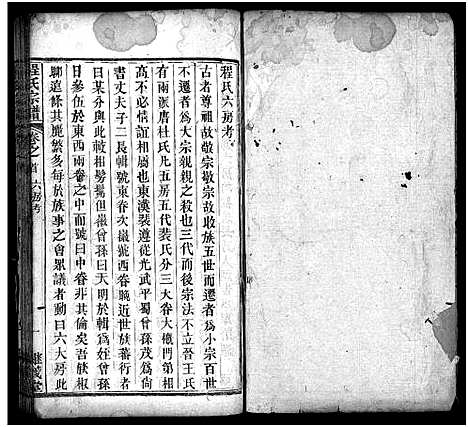 程氏六房考
古者尊祖故敬宗敬宗故收族五世而遷者為小宗百世
不遷者為大宗親親之殺也三代而後宗法不立晉王氏
有兩派唐杜氏九五房五代裴氏分三大眷大概門第相
高不必情誼相屬也東漢裴遵從光武平蜀曾孫茂為尚
書丈夫子二長輯號東眷次徽號西眷晚近世族蕃衍者
日某分與此相髣髴但徽曾孫曰天明於輯為姪曾孫
日參伍於東西兩眷之中而或曰中眷非其倫矣吾族椒
聊遠條其麗繁多每於族事之會眾議者動曰六大房此
程氏宗譜 卷之首 六房考 一 雍義堂